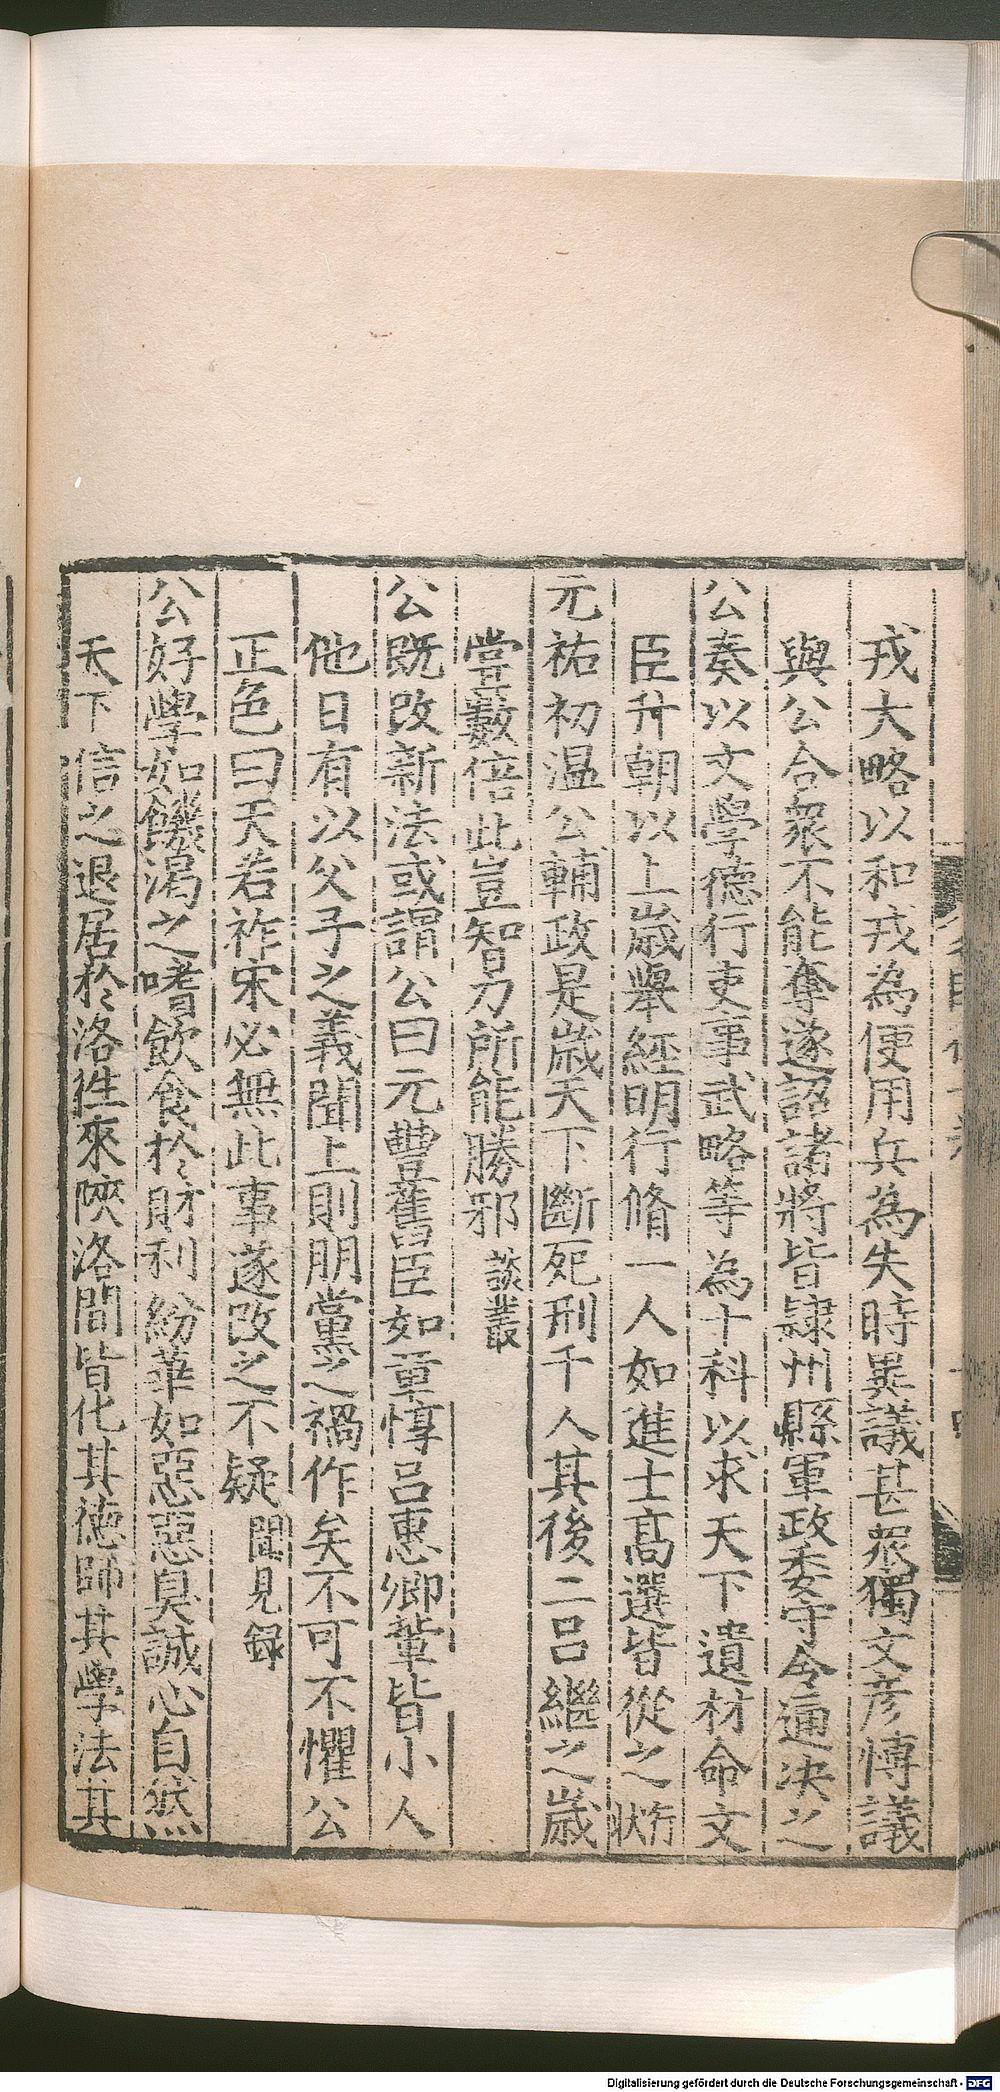 戎大略以和戎為便用兵為失時異議甚衆獨文彦愽議
與公合衆不能奪遂詔諸將皆隷州縣軍政委守令通決之
公奏以文學德行吏事武略等為十科以求天下遺材命文
臣升朝以上歳舉經明行脩一人如進士高選皆從之行狀
元祐初温公輔政是歳天下斷死刑千人其後二吕繼之歳
甞數倍此豈智力所能勝邪 談叢
公既改新法或謂公曰元豊舊臣如章惇吕惠卿輩皆小人
他日有以父子之義聞上則朋黨之禍作矣不可不懼公
正色曰天若祚宋必無此事遂改之不疑 聞見録
公好學如饑渴之嗜飲食於財利紛華如惡惡臭誠心自然
天下信之退居於洛徃來陝洛間皆化其德師其學法其
Digitalisierung gefördert durch die Deutsche Forschungsgemeinschaft - DFG